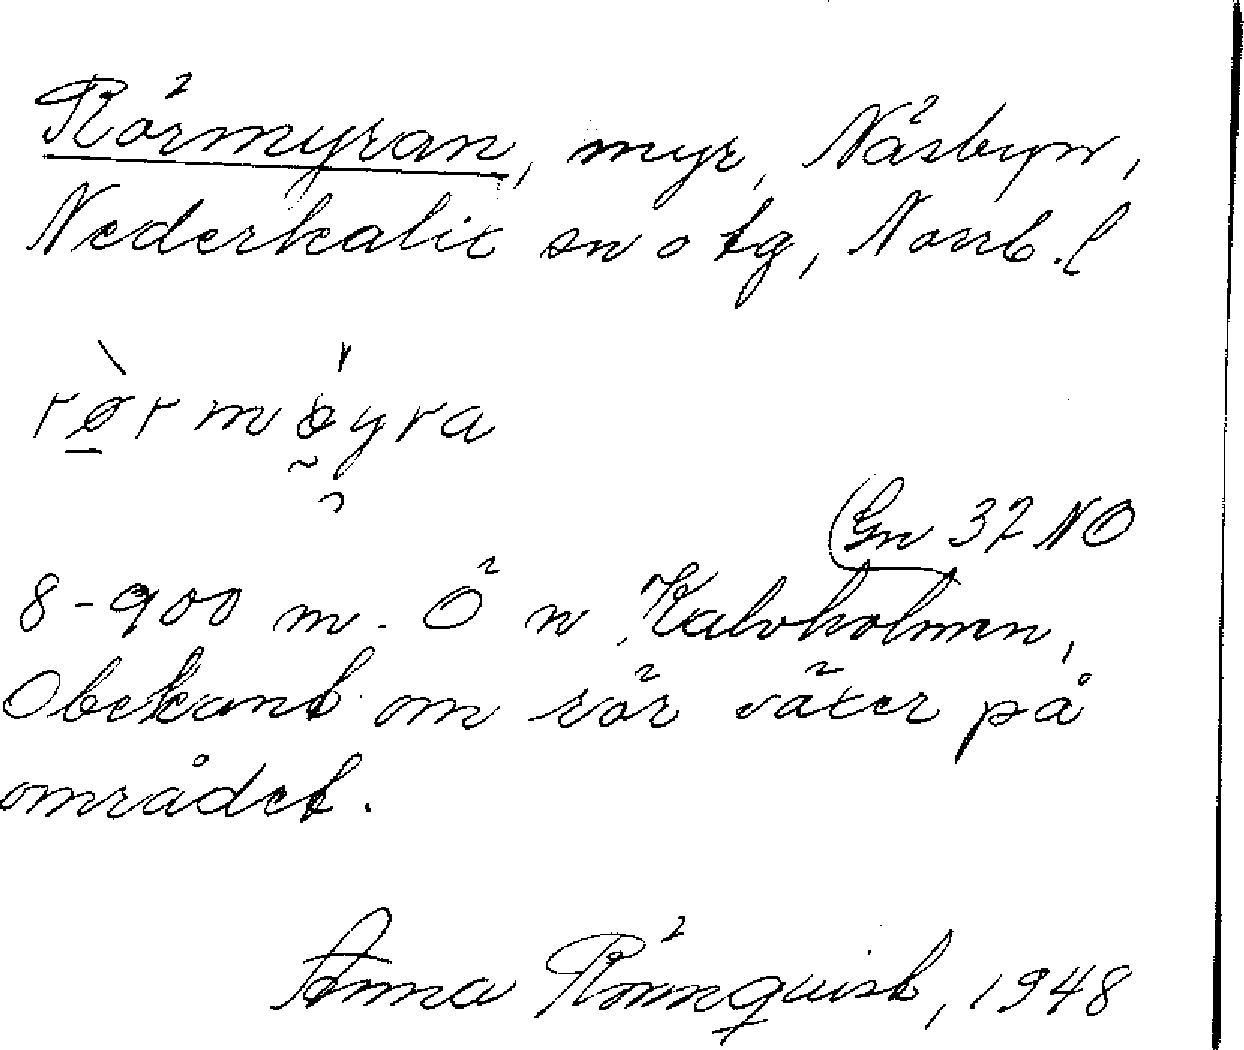 Rörmyran, myr, Näsbyn,
Nederkalix sn o tg, Norrb. l
rørmøyra
(Gn 37 NO
8-900 m. Ö n Kalvholmen,
Obekant om rör växer på
området.
Anna Rönnquist, 1948